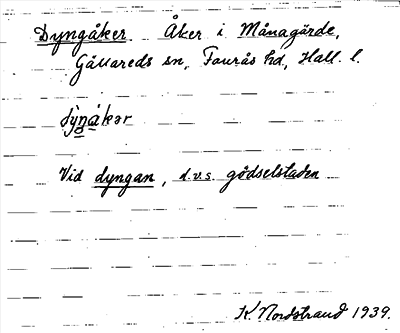 Dyngåker Åker i Månagärde,
Gällareds sn, Faurås hd, Hall. l.
Vid dyngan, d.v.s. gödselstaden
K. Nordstrand 1939.